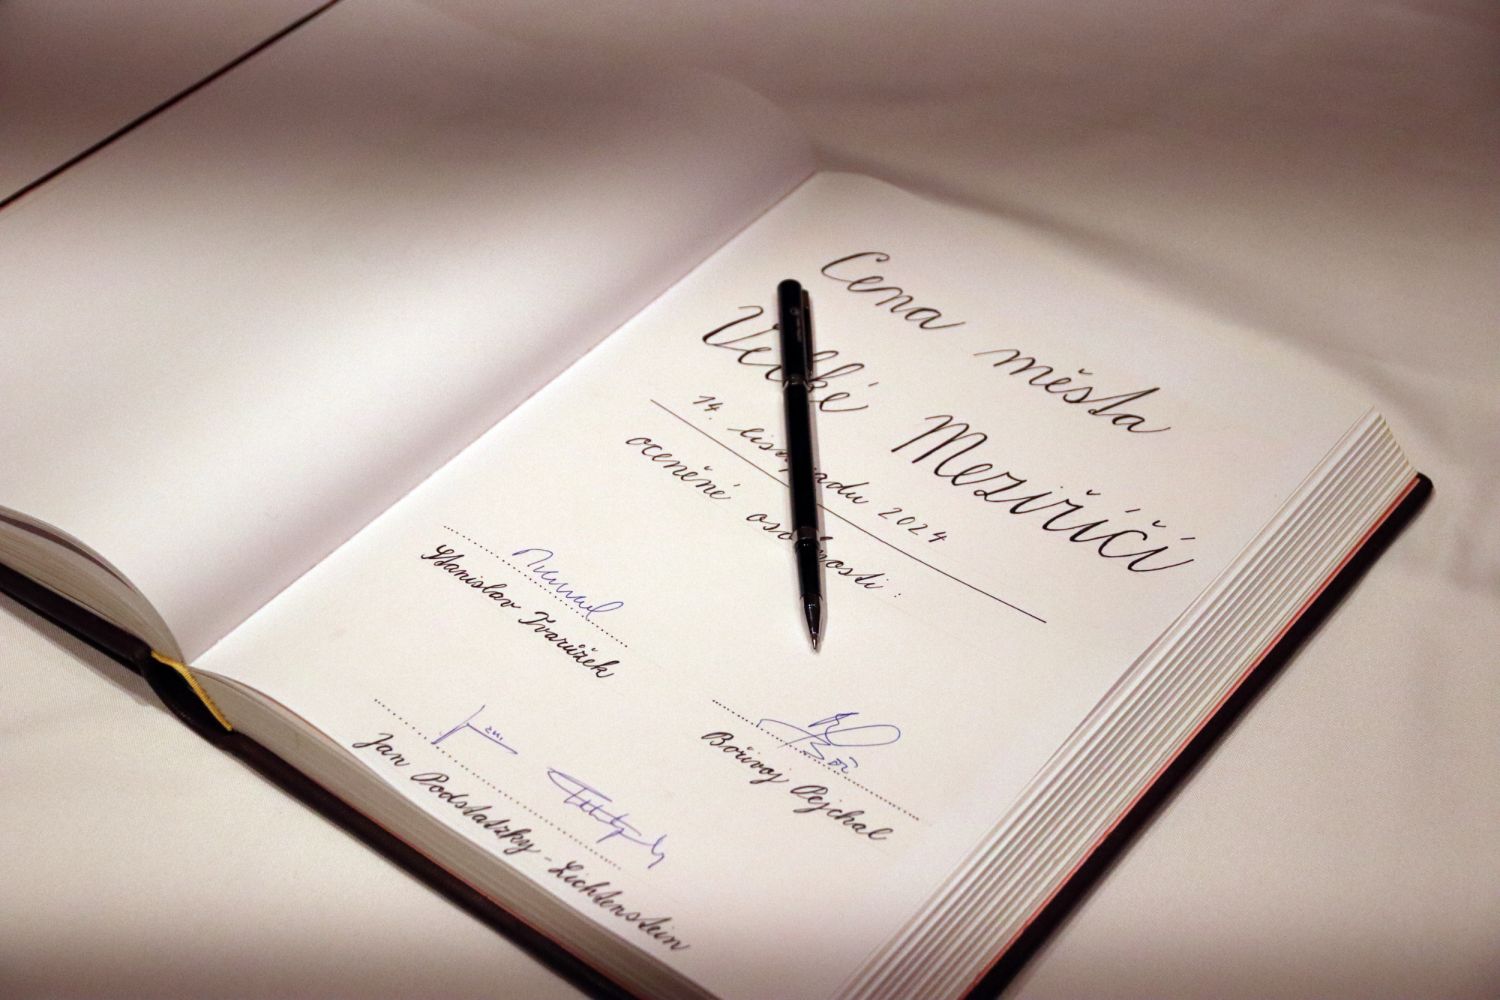 Cena města
Velké Meziříčí
14. listopadu 2024
oceněné osobnosti:
Stanislav Tvarůžek
Bořivoj Pejchal
Jan Podstatzky - Lichtenstein